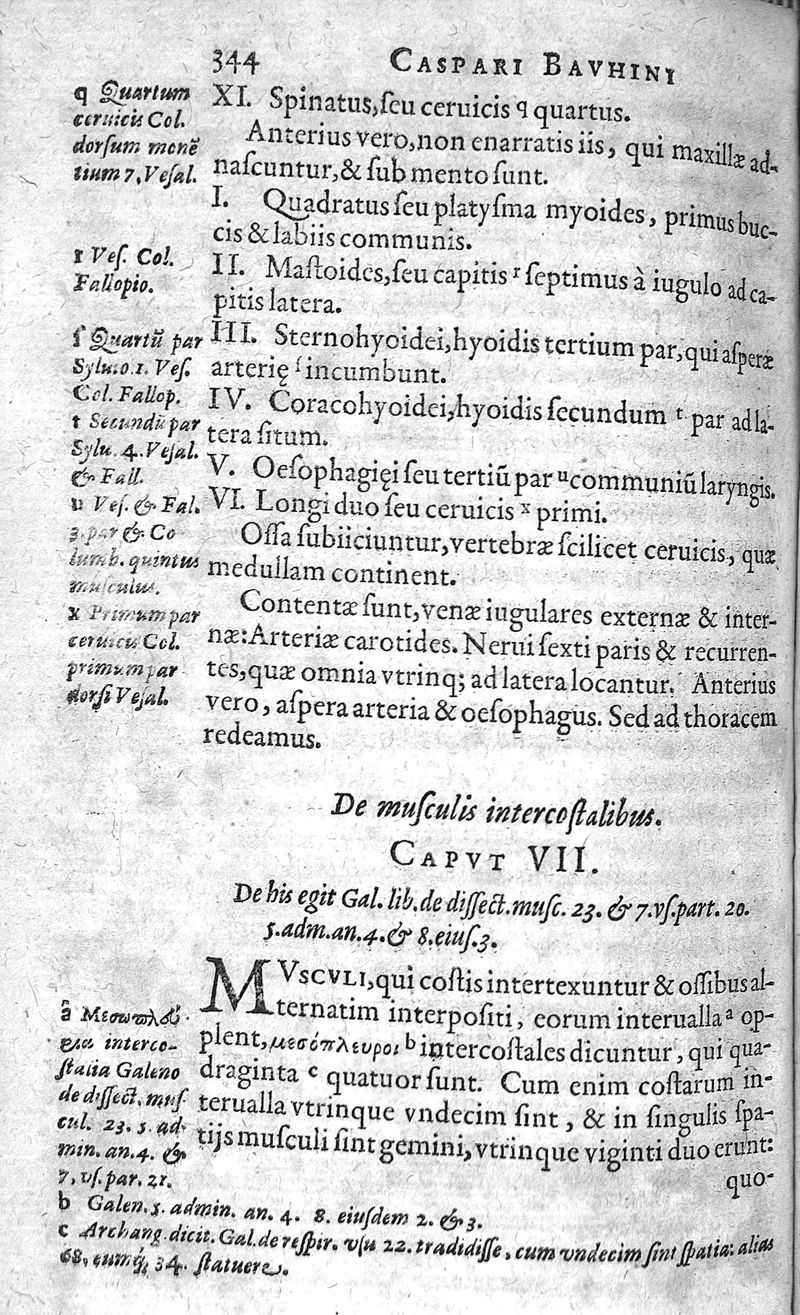 344 CASPARI BAVHINI
XI. Spinatus, ſeu ceruicis q quartus.
Anterius vero, non enarratis iis, qui maxillæ ad-
naſcuntur, & ſub mento ſunt.
I. Quadratus ſeu platyſma myoides, primus buc-
cis & labiis communis.
II. Maſtoides, ſeu capitis r ſeptimus à iugulo ad ca-
pitis latera.
III. Sternohyoidei, hyoidis tertium par, qui aſperæ
arterię ſ incumbunt.
IV. Coracohyoidei, hyoidis ſecundum t par ad la-
tera ſitum.
V. Oeſophagięi ſeu tertiũ par u communiũ laryngis.
VI. Longi duo ſeu ceruicis x primi.
Oſſa ſubiiciuntur, vertebræ ſcilicet ceruicis, quæ
medullam continent.
Contentæ ſunt, venæ iugulares externæ & inter-
næ: Arteriæ carotides. Nerui ſexti paris & recurren-
tes, quæ omnia vtrinq; ad latera locantur. Anterius
vero, aſpera arteria & oeſophagus. Sed ad thoracem
redeamus.
q Quartum
ceruicis Col.
dorſum monẽ
tium 7. Veſal.
r Veſ. Col.
Fallopio.
ſ Quartũ par
Sylu. 0. 1. Veſ.
Col. Fallop.
t Secundũ par
Sylu. 4. Veſal.
& Fall.
u Veſ. & Fal.
3. par & Co
lumb. quintus
muſculus.
x Primum par
ceruicis Col.
primum par
dorſi Veſal.
De muſculis intercoſtalibus.
CAPVT VII.
De his egit Gal. lib. de diſſect. muſc. 23. & 7. vſ. part. 20.
5. adm. an. 4. & 8. eiuſ. 3.
MVSCVLI, qui coſtis intertexuntur & oſſibus al-
ternatim interpoſiti, eorum interualla a op-
plent, μεσόπλευροι b intercoſtales dicuntur, qui qua-
draginta c quatuor ſunt. Cum enim coſtarum in-
terualla vtrinque vndecim ſint, & in ſingulis ſpa-
tijs muſculi ſint gemini, vtrinque viginti duo erunt:
quo-
a Μεσωπλεύ-
ρια interco-
ſtalia Galeno
de diſſect. muſ
cul. 23. 5. ad-
min. an. 4. &
7. vſ. par. 21.
b Galen. 5. admin. an. 4. 8. eiuſdem 2. & 3.
c Archang. dicit. Gal. de reſpir. vſu 22. tradidiſſe, cum vndecim ſint ſpatia: alias
68. eumq́; 34. ſtatuere.